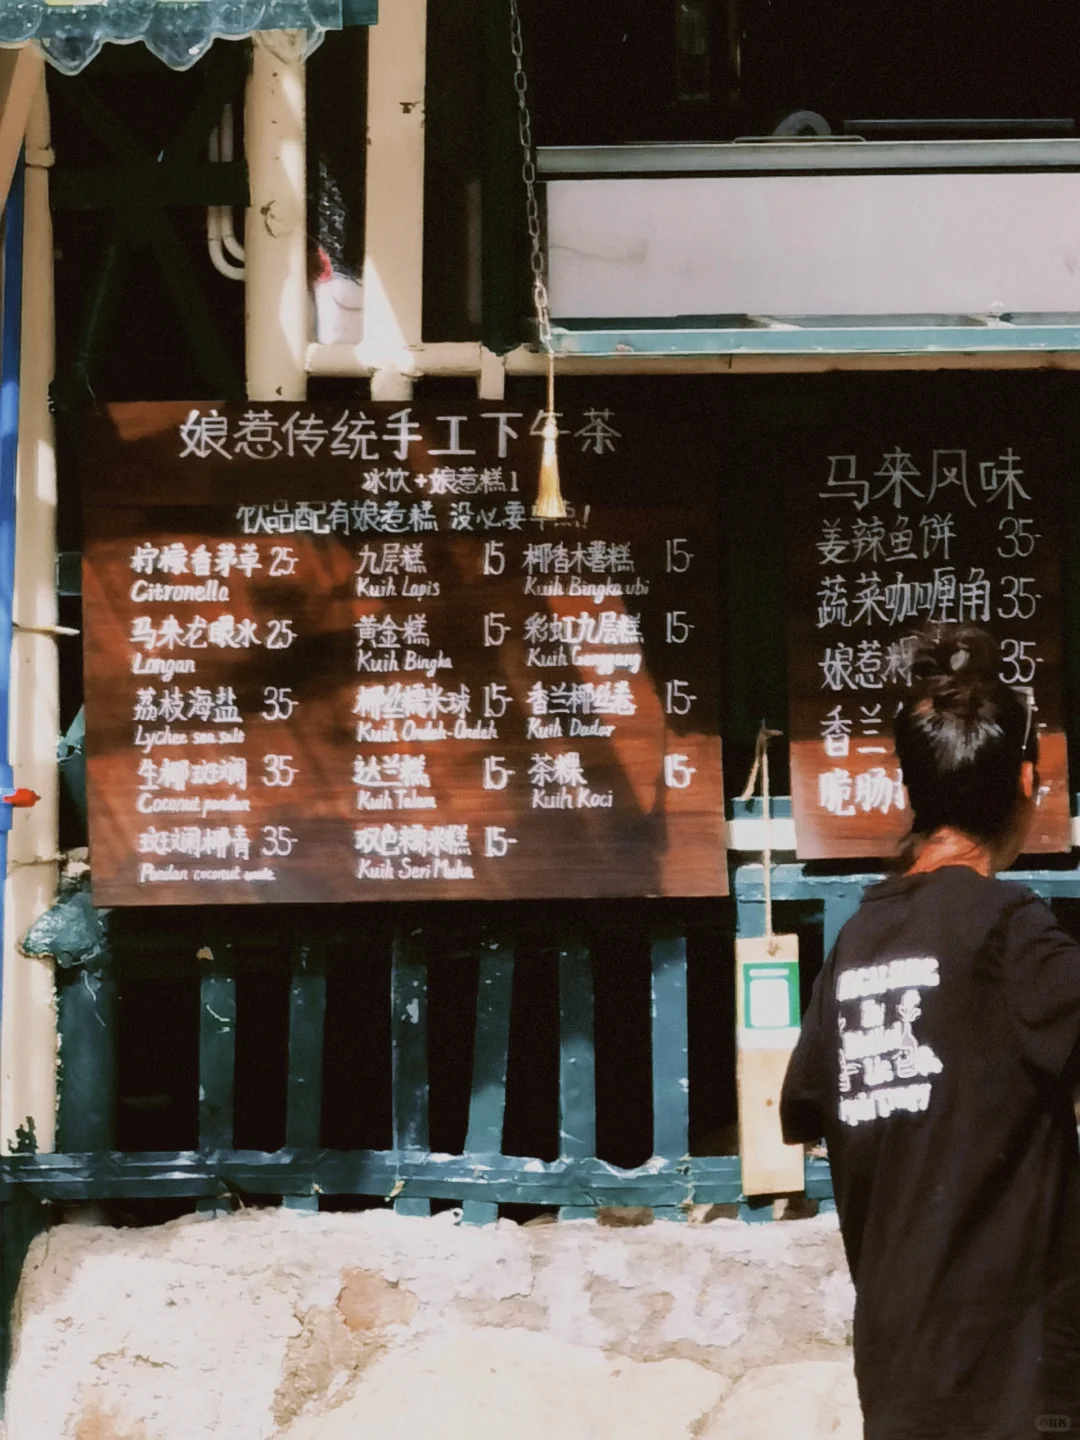 娘惹传统手工下午茶
冰饮+娘惹糕1
饮品配有娘惹糕 没必要单点!
柠檬香茅草 25-
Citronella
马来龙眼水 25-
Longan
荔枝海盐 35-
Lychee sea salt
生椰斑斓 35-
Coconut pandan
斑斓椰青 35-
Pandan coconut wate
九层糕 15
Kuih Lapis
黄金糕 15-
Kuih Bingka
椰丝糯米球 15-
Kuih Ondeh-Ondeh
达兰糕 15-
Kuih Talam
双色糯米糕 15-
Kuih Seri Muka
椰香木薯糕 15-
Kuih Bingka ubi
彩虹九层糕 15-
Kuih Genggang
香兰椰丝卷 15-
Kuih Dadar
茶粿 15-
Kuih Koci
马來风味
姜辣鱼饼 35-
蔬菜咖喱角 35-
娘惹 35-
香兰
脆肠
小红书